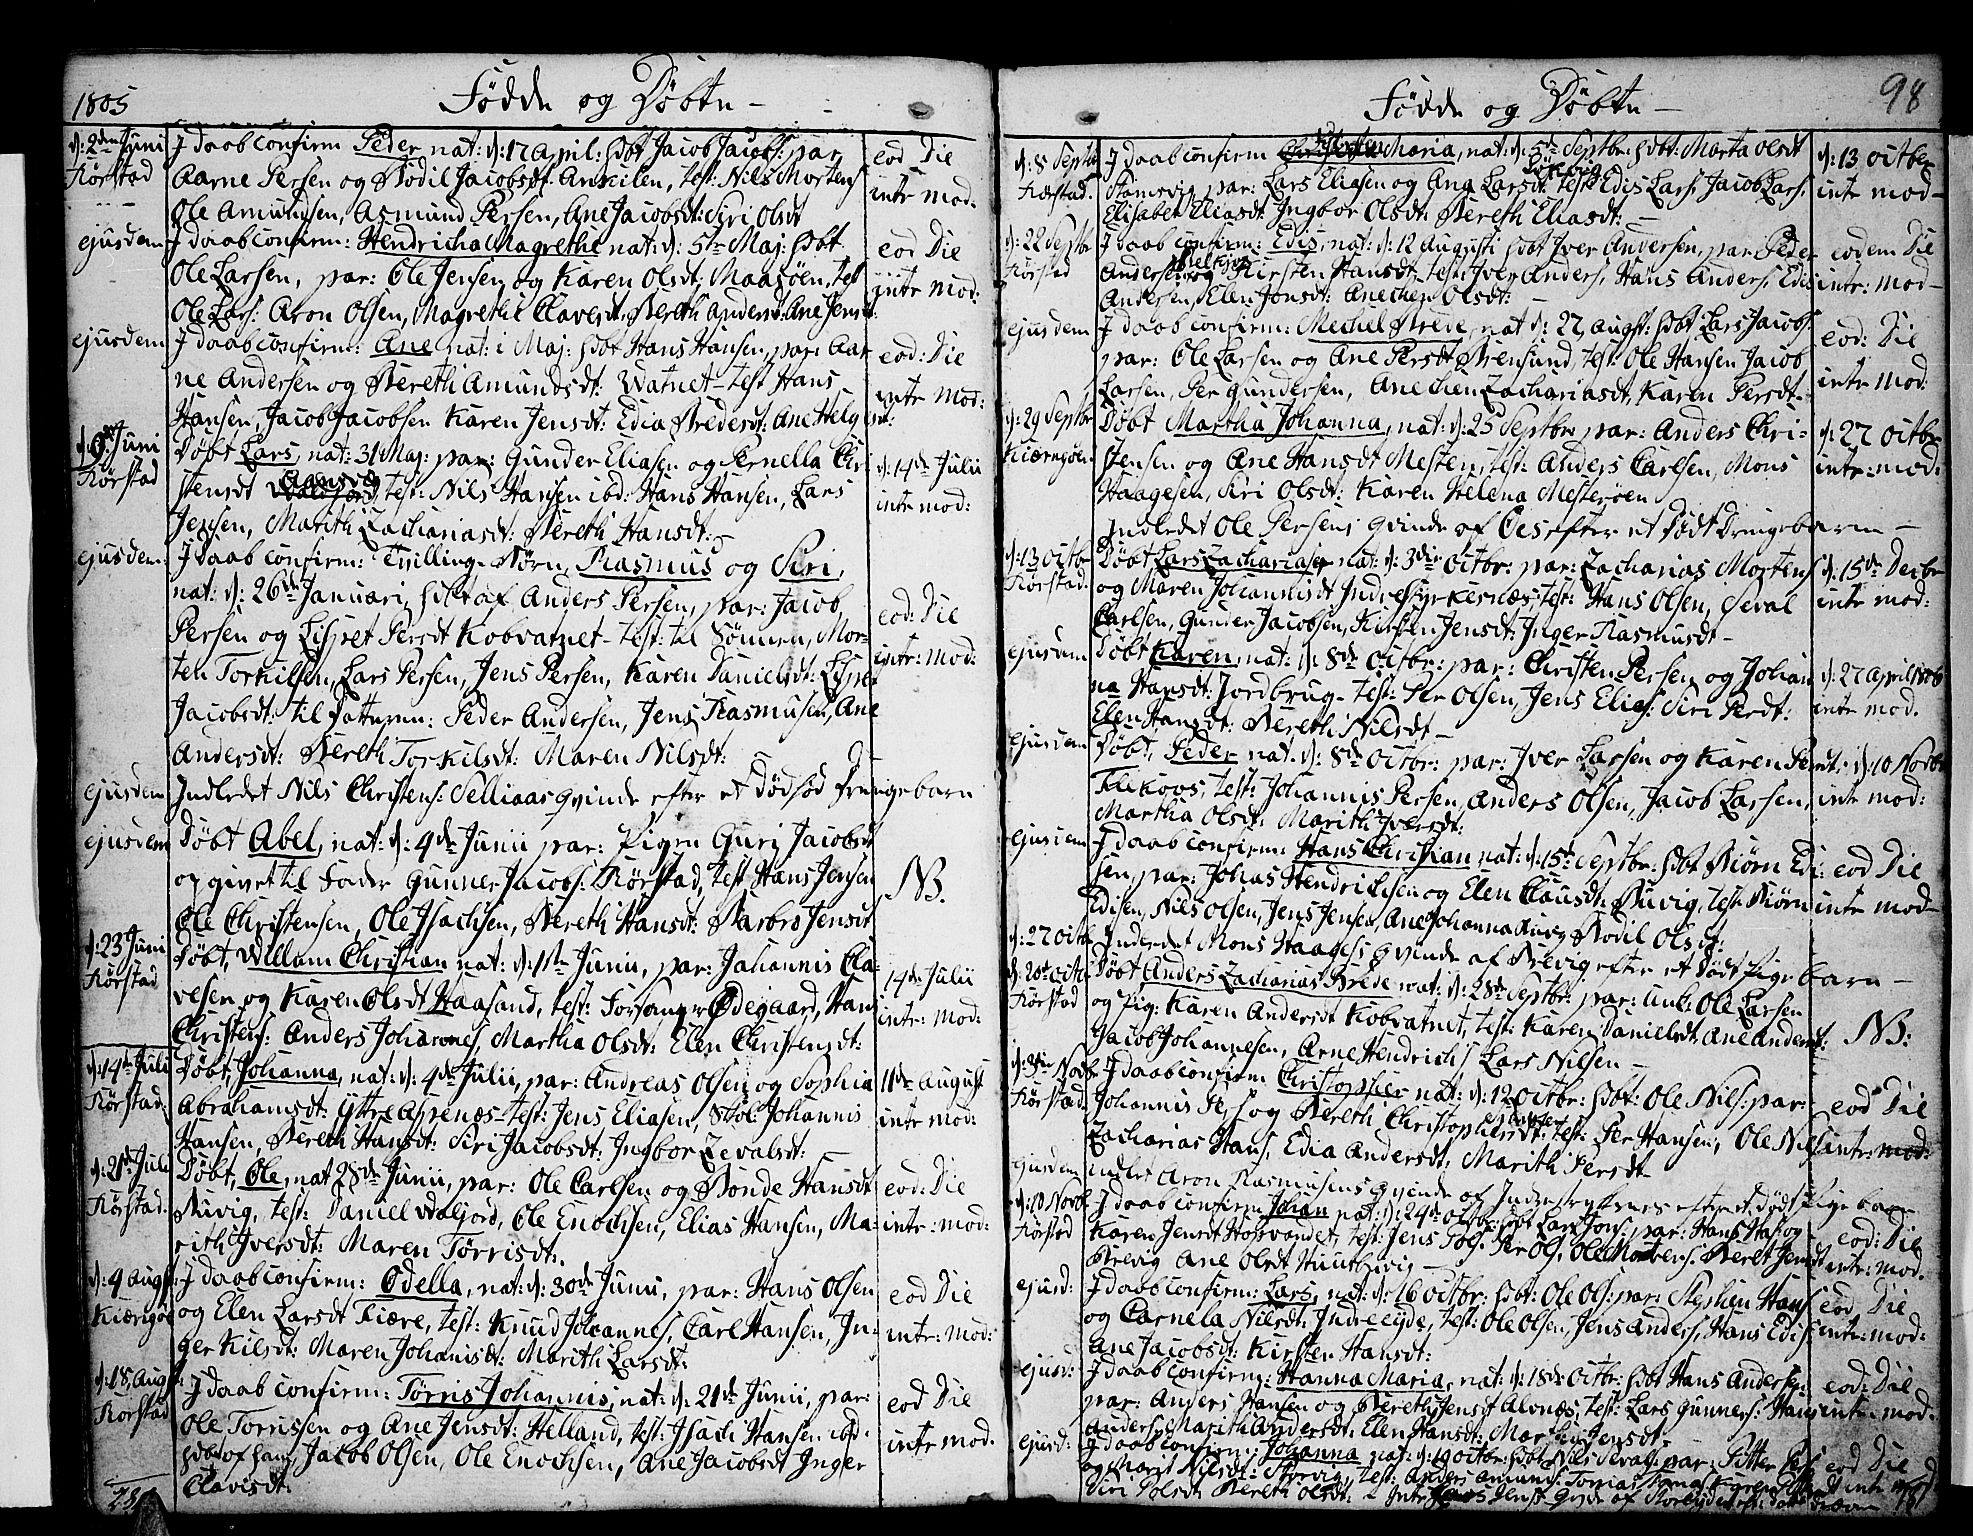 1805
Födde og Döbte -
d: 2den Juni
Körstad
J daab confirm Peder nat: d: 17 April: hdbt Jacob Jacobs: par
Aarne Persen og Bodil Jacobsdt: test: Nils Mortens
Ole Amundsen, Asmund Persen, Ane Jacobsdt: Siri Olsdt
eod Die
intr mod:
ejusdem
J daab confirm: Hendricha Magrethe nat: d: 5te Maj: hdbt
Ole Larsen, par: Ole Jensen og Karen Olsdt: Maasöen, test
Ole Lars: Aron Olsen, Magrethe Clavesdt: Bereth Andersd: Ane Jensdt:
eod Die
intr mod:
ejusdem
J daab confirm: Ane nat: 1 Maj: hdbt Hans Hansen, par: Aar
ne Andersen og Bereth Amundsdt: Vatnet - test Hans
Hansen, Jacob Jacobsen Karen Jensdt: Edia Bredesdt: Ane Helgesdt:
eod: Die
intr mod:
Juni
Körstad
Döbt Lars, nat: 31 Maj: par: Gunder Eliasen og Pernella Chri
stensdt test: Nils Hansen ibd: Hans Hansen, Lars
Jensen, Marith Zachariasdt: Bereth Hansdt: -
d: 14de Julii
intr mod:
ejusdem:
J Daab confirm: Tvilling-Börn, Rasmus og Siri,
nat: d: 26de Januari, hdbt af Anders Persen, par: Jacob
Persen og Lispet Persdt Kobvatnet - test: til Sönnen, Mor-
ten Torkilsen, Lars Persen, Jens Persen, Karen Danielsdt: Lispet
Jacobsdt: til Datteren: Peder Andersen, Jens Rasmusen, Ane
Andersdt: Bereth Torkilsdt: Maren Nilsdt:
eod: Die
intr: mod:
ejusdem
Indledet Nils Christens: Selliaas Qvinde efter et dödföd Drengebarn
ejusdem
Döbt Abel, nat: d: 4de Junii par: Pigen Guri Jacobsdt
opgivet til Fader Gunner Jacobs: Körstad, test Hans Jensen
Ole Christensen, Ole Isachsen, Bereth Hansdt: Barbro Jensdt
NB.
d: 23 Juni
Körstad
Döbt, Willum Christian nat: d: 11te Junii, par: Johannis Cla-
vesen og Karen Olsdt Haasand, test: Forsanger Ödegaard, Hans
Christens: Anders Johannes, Martha Olsdt: Elen Christensdt:
14de Julii
intr: mod:
d: 14de Juli
Körstad:
Döbt, Johanna, nat: d: 4de Julii, par: Andreas Olsen og Sophia
Abrahamsdt: Yttre Aspenæs - test: Jens Eliasen, Skol: Johannis
Hansen, Bereth Hansdt: Siri Jacobsdt: Ingbor Zevalsdt: -
11de August
intr mod:
d: 21de Juli
Körstad.
Döbt, Ole, nat 28de Junii, par: Ole Carlsen og Bonde Hansdt
Buvig, test: Daniel Valjord, Ole Enochsen, Elias Hansen, Ma-
rith Iversdt: Maren Törrisdt:.
eod: Die
intr: mod:
d: 4 Augst:
Kiæringöe
J daab confirm: Odella, nat: d: 30de Junii, par: Hans Olsen
og Elen Larsdt Fiære, test: Knud Johannes, Carl Hansen, In-
ger Kilsdt: Maren Johanisdt: Marith Larsdt:
eod Die
intr: mod:
d: 18 Augst:
Körstad
J daab confirm: Törris Johannis, nat: d: 21de Junii, par:
Ole Torrissen og Ane Jensdt: Helland, test: Isach Hansen ibd.
hdbt af ham, Jacob Olsen, Ole Enochsen, Ane Jacobsdt Inger
Clavisdt:
eod Die
intr mod.
Födde og Döbte -
98
d: 8 Septbr
Körstad.
J daab confirm Maria, nat: d: 5te Septbr: hdbt: Marta Olsdt
Stamsvig par: Lars Eliasen og Ane Larsdt: test: Edis Lars: Jacob Lars:
Elisabet Eliasdt: Ingbor Olsdt: Bereth Eliasdt: -
d: 13 octbr
intr mod-
d: 22 Septbr
Körstad
J daab confirm: Edis, nat: d: 12 Augusti hdbt Iver Andersen, par: Peder
Andersen og Kirsten Hansdt: test: Iver Anders, Hans Anders, Edis
Andersen, Elen Jonsdt: Anechen Olsdt: -
eodem Die
intr: mod-
ejusdem
J daab confirm: Mechel Brede, nat d: 22 Augst: hdbt Lars Jacobs:
par: Ole Larsen og Ane Persdt Brensund, test: Ole Hansen Jacob
Larsen, Per Gundersen, Anechen Zachariasdt, Karen Persdt -
eod: Die
intr mod:
d: 29 Septbr
Kiæringöen
Döbt Martha Johanna, nat: d: 25 Septbr par: Anders Chri-
stensen og Ane Hansdt Mesten, test: Anders Carlsen, Mons
Haagesen, Siri Olsdt: Karen Helena Mesteröen
d: 27 octbr
intr: mod:
Indledet Ole Persens Qvinde af Oes efter et Dödt Drengebarn -
d: 13 octbr
Körstad:
Döbt Lars Zachariasen nat: d: 3die octbr: par: Zacharias Mortens
og Maren Johannisdt Indre test: Hans Olsen, Seval
Carlsen, Gunder Jacobsen, Kirsten Jensdt: Inger Rasmusdt -
d: 15de Decbr
intr mod:
ejusdem
Döbt Karen, nat: d: 8de Octbr: par: Christen Persen og Johan
na Hansdt: Jordbrug - test: Per Olsen, Jens Elias: Siri Persdt:
Elen Hansdt: Bereth Nilsdt -
d: 27 April 1806
intr mod.
ejusdem
Döbt, Peder nat: d: 8de Octbr: par: Iver Larsen og Karen Persdt:
test: Johannis Persen, Anders Olsen, Jacob Larsen,
Martha Olsdt: Marith Iversdt:
d: 10 Novbr
intr mod:
ejusdem
J daab confirm: Hans Christian nat: d: 15de Septbr: hdbt Biörn Edi
sen, par: Johas Hendrichsen og Elen Clausdt: Buvig, test: Biörn
Edisen, Nils Olsen, Jens Jensen, Ane Johanna Buvig Bodil Olsdt:
eod Die
intr mod-
d: 27 octb
Indledet Mons Haages Qvinde af Brevig efter et Dödt Pigebarn -
d: 20de octb
Körstad
Döbt Anders Zacharias Brede nat: d: 28de Septbr: par: Unk: Ole Larsen
og Pig: Karen Andersdt Kobvatnet, test: Karen Danielsdt: Ane Andersdt:
Jacob Johannesen, Arne Hendrichs Lars Nilsen -
NB:
d: 3die Novb
Körstad.
J daab confirm Christopher nat: d: 12 octbr: hdbt: Ole Nils: par:
Johannis Pers og Bereth Christophersdt: test: Per Hansen, Ole Nils:
Zacharias Hans, Edia Andersdt: Marith Persdt
eod Die
intr: mod:
ejusdem
Indlet Aron Rasmusens Qvinde af efter et dödt Pige barn
d: 10 Novb
Körstad
J daab confirm Johan nat: d: 24de octbr: hdbt Lars Jons: par: Hans Hans og
Karen Jensdt test: Jens Per Ols, Ole Bereth Jensdt
Brevig Ane Olsdt
eod: Die
intr: mod.
ejusd:
J daab confirm: Lars, nat: d: 16 Octbr: hdbt: Ole Ols: par: Stephen Hans
og Carnela Nilsdt: Indreeyde, test: Ole Olsen, Jens Anders, Hans Edis:
Ane Jacobsdt: Kirsten Hansdt:
eod Die
intr: mod:
ejusd:
J daab confirm: Hanna Maria, nat: d: 18de Octbr: hdbt Hans Andersen,
par: Anders Hansen og Bereth Jensdt Alvnæs, test: Lars Gunners: Hans
Anders, Marith Andersdt: Elen Hansdt: Marith Jensdt:
eod: Die
intr: mod.
ejusd:
J daab confirm: Johanna nat: d: 19 octbr: hdbt Nils Sevals: par: Pitter
og Marit Nilsdt: Storvig, test: Anders Amunds: Tomas
Siri Olsdt: Bereth Olsdt: - Jens Qvde af
eod Die
intr mod